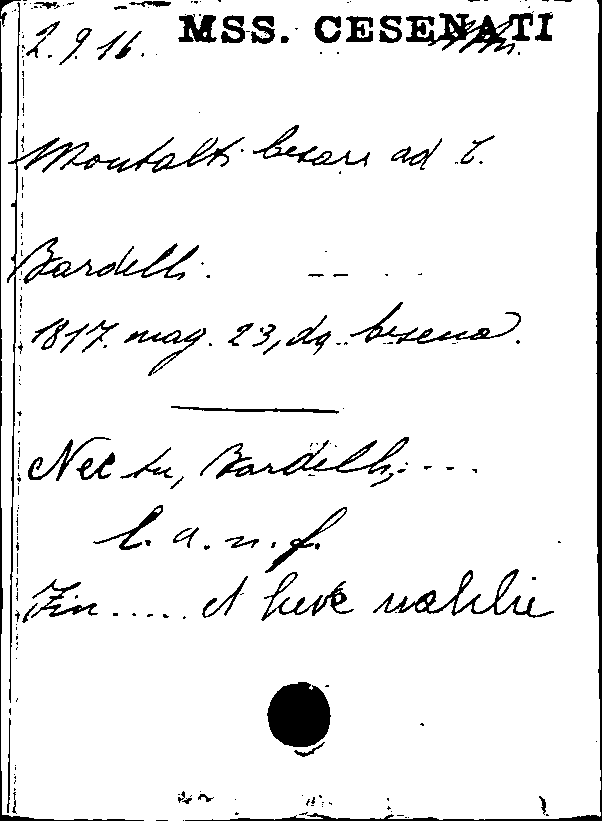 2.9.16. MSS. CESENATI
Montalti Cesare ad C.
Bardelli. -- . .
1817. mag. 23, da Cesena.
Nec tu, Bardelli, ...
C. a. n. f.
Fin ..... et